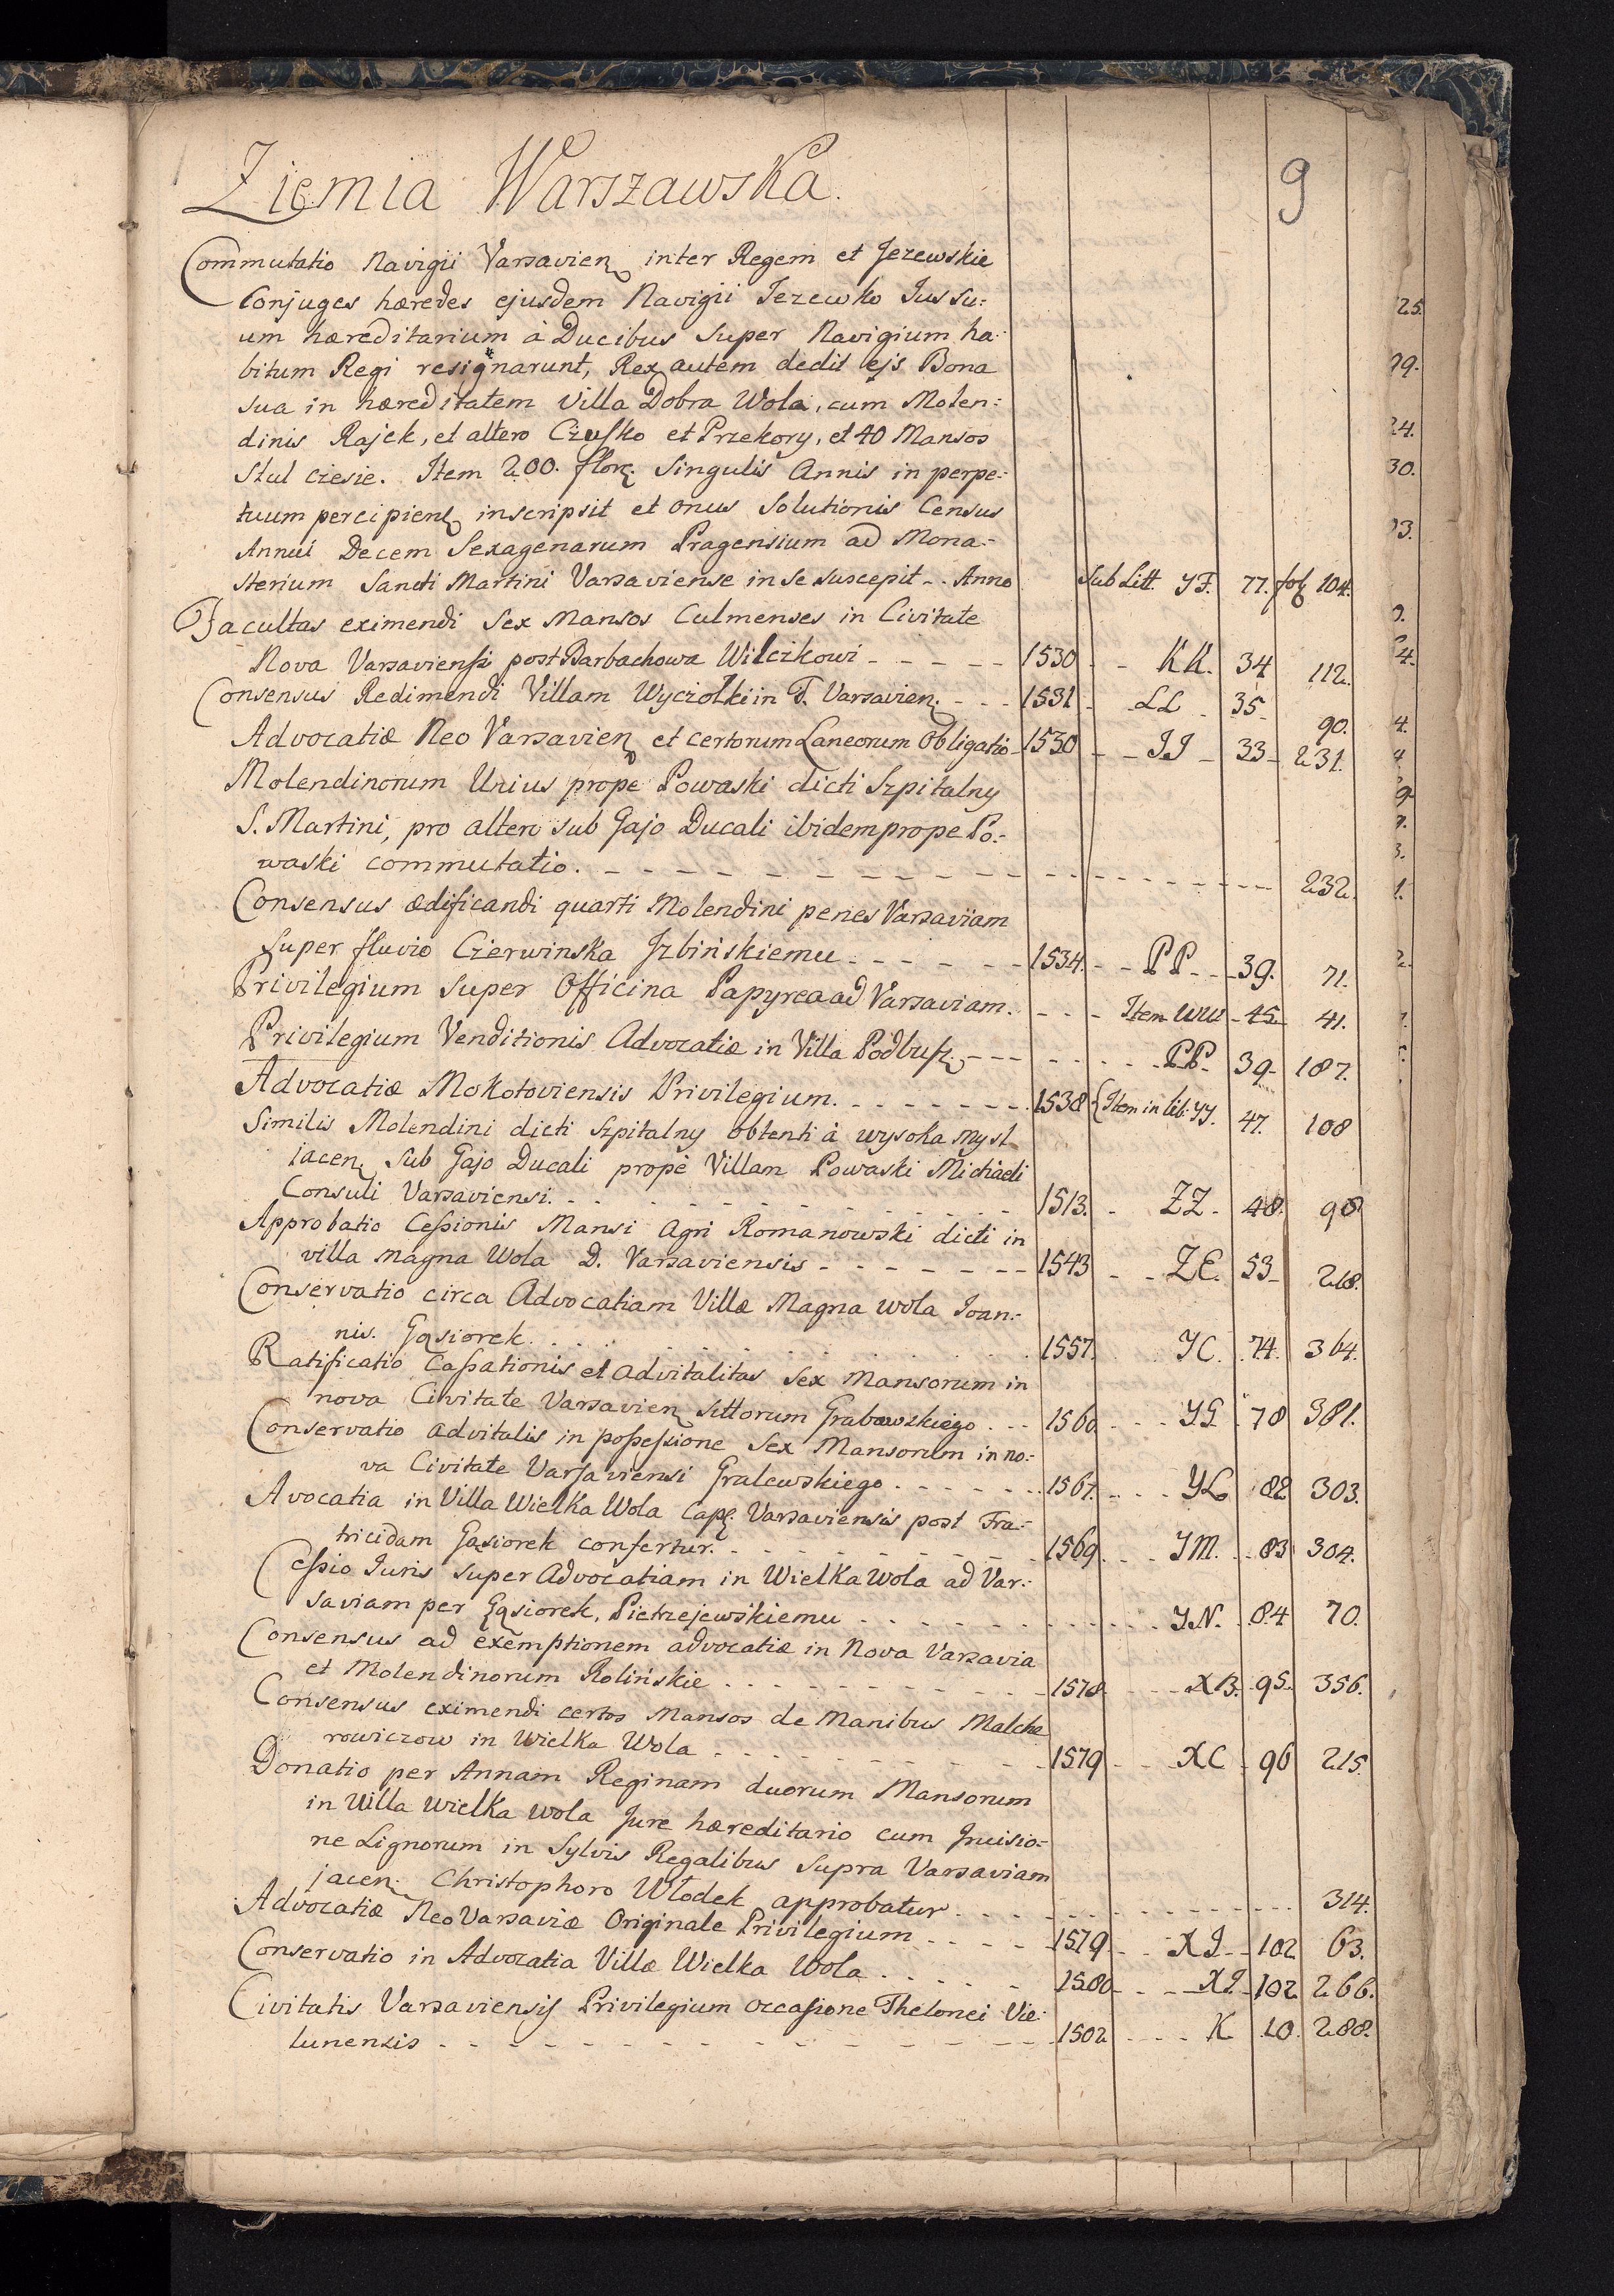 9
Ziemia Warszawska.
Commutatio Navigii Varsavien inter Regem et Jezewskie
Conjuges hæredes ejusdem Navigii Jezewko Jus su=
um hæreditarium à Ducibus super Navigium ha=
bitum Regi resignarunt, Rex autem dedit ejs Bona
sua in hæreditatem Villa Dobra Wola, cum Molen=
dinis Rajek, et altero Czusko et Przekory, et 40 Mansos
Stul cziesie. Item 200. flor. Singulis Annis in perpe=
tuum percipien inscripsit et onus Solutionis Census
Annui Decem Sexagenarum Pragensium ad Mona=
sterium Sancti Martini Varsaviense in se suscepit - . Anno Sub Litt. YF. 77. fol 104.
Facultas eximendi Sex Mansos Culmenses in Civitate
Nova Varsaviensi post Barbachowa Wilczkowi - - - - - 1530 - - KK. 34 112.
Consensus Redimendi Villam Wyciolki in T. Varsavien. - - - 1531 - LL - 35 90.
Advocatiæ Neo Varsavien et certorum Laneorum Obligatio - 1530 - - JJ - 33 - 231.
Molendinorum Unius prope Powaski dicti Szpitalny
S. Martini, pro altero sub Gajo Ducali ibidem prope Po=
waski commutatio. - - - - - - - - - - 232.
Consensus ædificandi quarti Molendini penes Varsaviam
super fluvio Czerwinska Jzbińskiemu - - - - - - 1534. - - PP. - - 39. 71.
Privilegium super Officina Papyrea ad Varsaviam. - - - Item WW - 45 - 41.
Privilegium Venditionis Advocatiæ in Villa Podbusz. - - - - - - PP. 39 - 187.
Advocatiæ Mokotoviensis Privilegium. - - - - - - - 1538 {Item in lib: YY. 47. 108
Similis Molendini dicti Szpitalny obtenti à wysoka Mysl
jacen. sub Gajo Ducali propè Villam Powaski Michaeli
Consuli Varsaviensi. - - - - - - - - - 1513. - ZZ - 48. 98
Approbatio Cessionis Mansi Agri Romanowski dicti in
villa magna Wola D. Varsaviensis - - - - - - - 1543 - - ZE. 53 - 218.
Conservatio circa Advocatiam Villæ Magna Wola Joan=
nis. Gąsiorek. . . . . . . . . . . 1557. . . YC. 74. 364.
Ratificatio Cassationis et advitalitas Sex Mansorum in
nova Civitate Varsavien Sittorum Grabowskiego . - - 1560. - - - YG. 78 381.
Conservatio advitalis in possessione Sex Mansorum in no=
va Civitate Varsaviensi Gralewskiego . - - - - - - 1567. - - - YL 82 303.
Avocatia in Villa Wielka Wola Cap. Varsaviensis post Fra=
tricidam Gąsiorek confertur. - - - - - - - - 1569 . . . YM. - 83 304.
Cessio Juris super Advocatiam in Wielka Wola ad Var=
saviam per Gąsiorek, Pietrzejewskiemu - - - - - - - - - YN. . 84 70.
Consensus ad exemptionem advocatiæ in Nova Varsavia
et Molendinorum Rolińskie - - - - - - - - - - 1578 - - - XB. - 95. 356.
Consensus eximendi certos Mansos de Manibus Malche
rowiczow in Wielka Wola - - - - - - - - - - 1579 - - - XC - 96 215.
Donatio per Annam Reginam duorum Mansorum
in Villa Wielka Wola Jure hæreditario cum Incisio=
ne Lignorum in Sylvis Regalibus supra Varsaviam
jacen. Christophoro Włodek approbatur . - - - - - - - - - - 314.
Advocatiæ Neo Varsaviæ Originale Privilegium - - - - - 1579 - - XJ - - 102 63.
Conservatio in Advocatia Villæ Wielka Wola . - - - - - 1580 - - - XJ - 102 266.
Civitatis Varsaviensis Privilegium occasione Thelonei Vie=
lunensis - - - - - - - - - - - - 1502 - - - - K 10. 288.